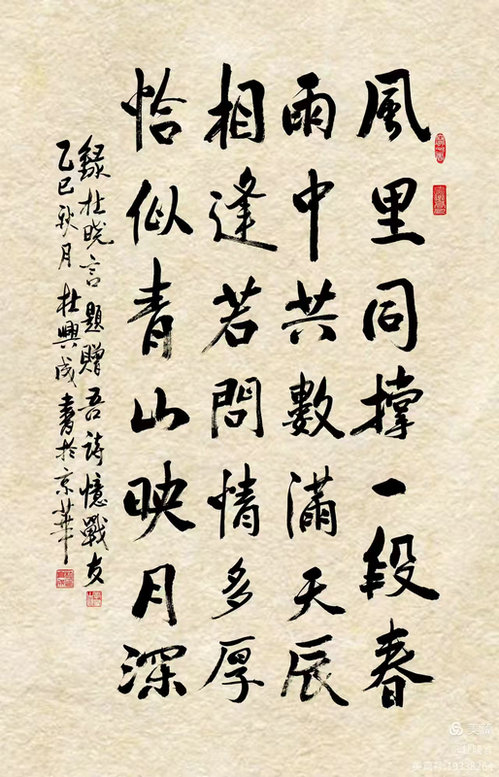 風里同撑一段春
雨中共數滿天辰
相逢若問情多厚
恰似青山映月深
録杜曉言題贈吾詩憶戰友
乙巳秋月杜興成書於京華